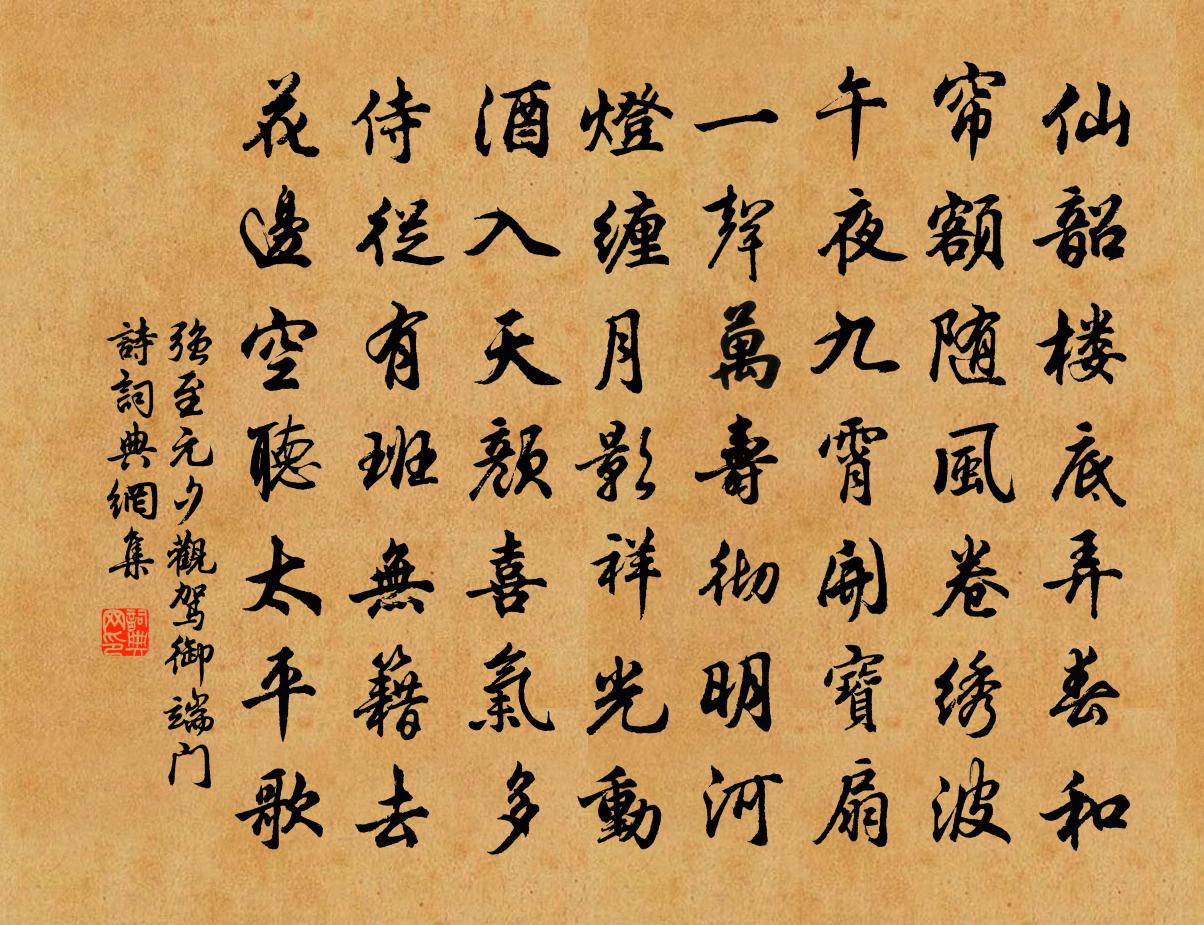 仙韶楼底弄春和
帘額随風卷绣波
午夜九霄開寶扇
一聲萬壽彻明河
燈缠月影祥光動
酒入天颜喜氣多
侍從有班無籍去
花邊空聽太平歌
强至元夕觀駕御端门
詩詞典網集
詞典网印